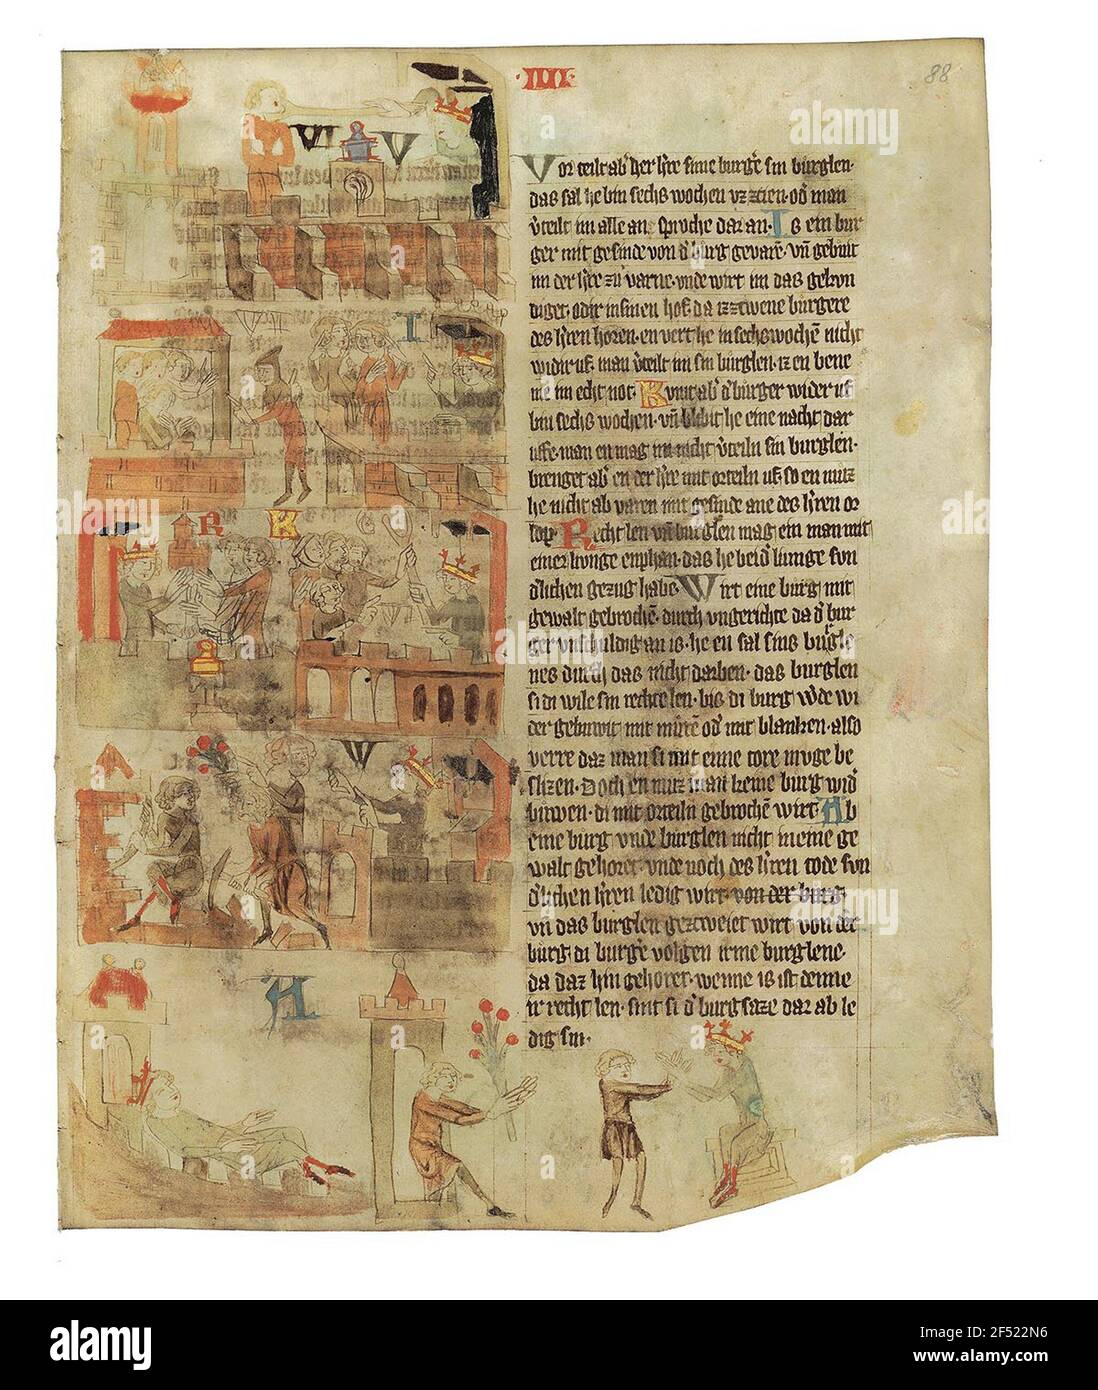 ·IIII·
88
VI V
I
R K
W
A
A
Vor teilt ab' der h're sime burge' sin burglen·
das sal he bin sechs wochen vz zien· od' man
v'teilt im alle an sproche dar an· Is ein bur
ger mit gesinde von d' burg gevare̅· vn̅ gebuit
im der h're zu varne· vnde wirt im das gekvn
diget· odir in sinen hof· da iz zwene burgere
des h'ren horen· en vert he in sechs woche̅ nicht
widir uf· man v'teilt im sin burglen· iz en bene
me im echt not· Kvmt ab' d' burger wider uf
bin sechs wochen· vn̅ blibit he eine nacht dar
uffe· man en mag im nicht v'teiln sin burglen·
brenget ab' en der h're mit orteiln uf· so en mvz
he nicht ab varen mit gesinde ane des h'ren or
lop· Recht len vn̅ burglen mag ein man mit
einer enphan· das he beid'
d'lichen gezug habe· Wirt eine burg mit
gewalt gebroche̅· durch vngerichte da d' bur
ger vnschuldig an is· he en sal sins burgle
nes durch das nicht darben· das burglen
si di wile sin rechte len· bis di burg w'de wi
der gebuwit mit mure̅ od' mit blanken· also
verre daz man si mit eime tore mvge be
slizen· Doch en mvz man keine burg wid'
buwen· di mit orteiln gebroche̅ wirt· Ab
eine burg vnde burglen nicht in eine ge
walt gehoret· vnde noch des h'ren tode svn
d'lichen h'ren ledig wirt· von der burg·
vn̅ das burglen gezweiet wirt von der
burg· di burge' volgen irme burglene·
da daz hin gehoret· wenne is ist denne
ir recht len· sint si d' burgsaze dar ab le
dig sin·
alamy
Image ID: 2F522N6
www.alamy.com